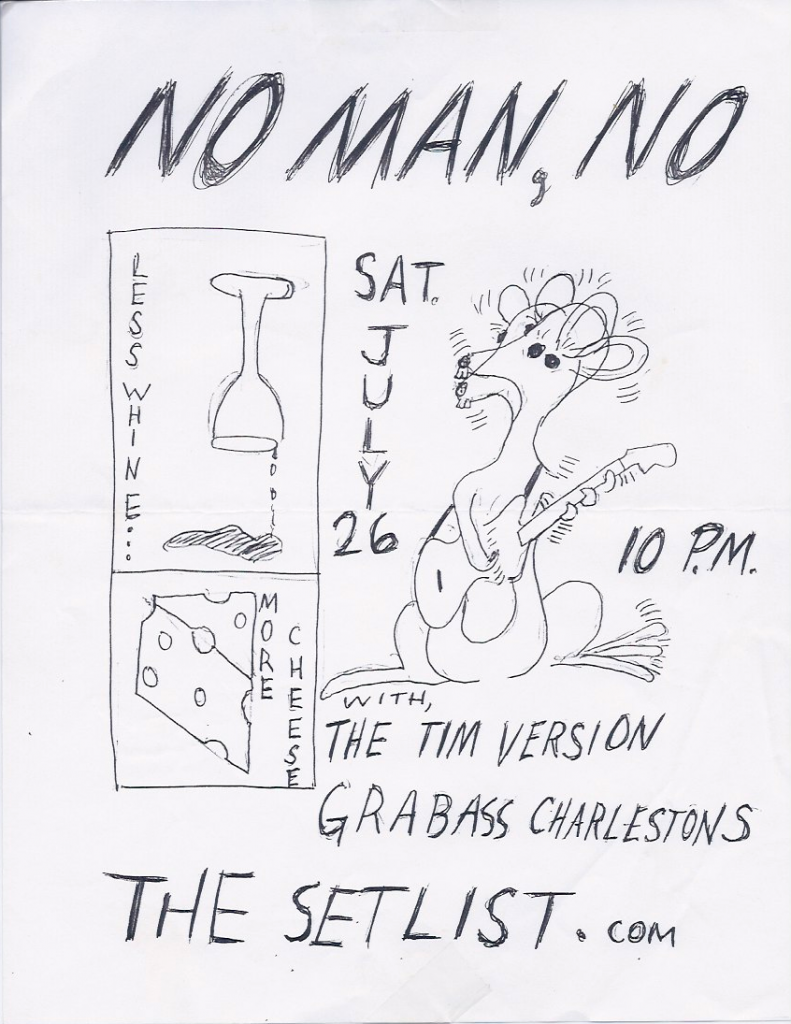 NO MAN, NO
LESS WHINE...
MORE
CHEESE
SAT.
JULY
26
10 P.M.
WITH,
THE TIM VERSION
GRABASS CHARLESTONS
THE SETLIST.COM